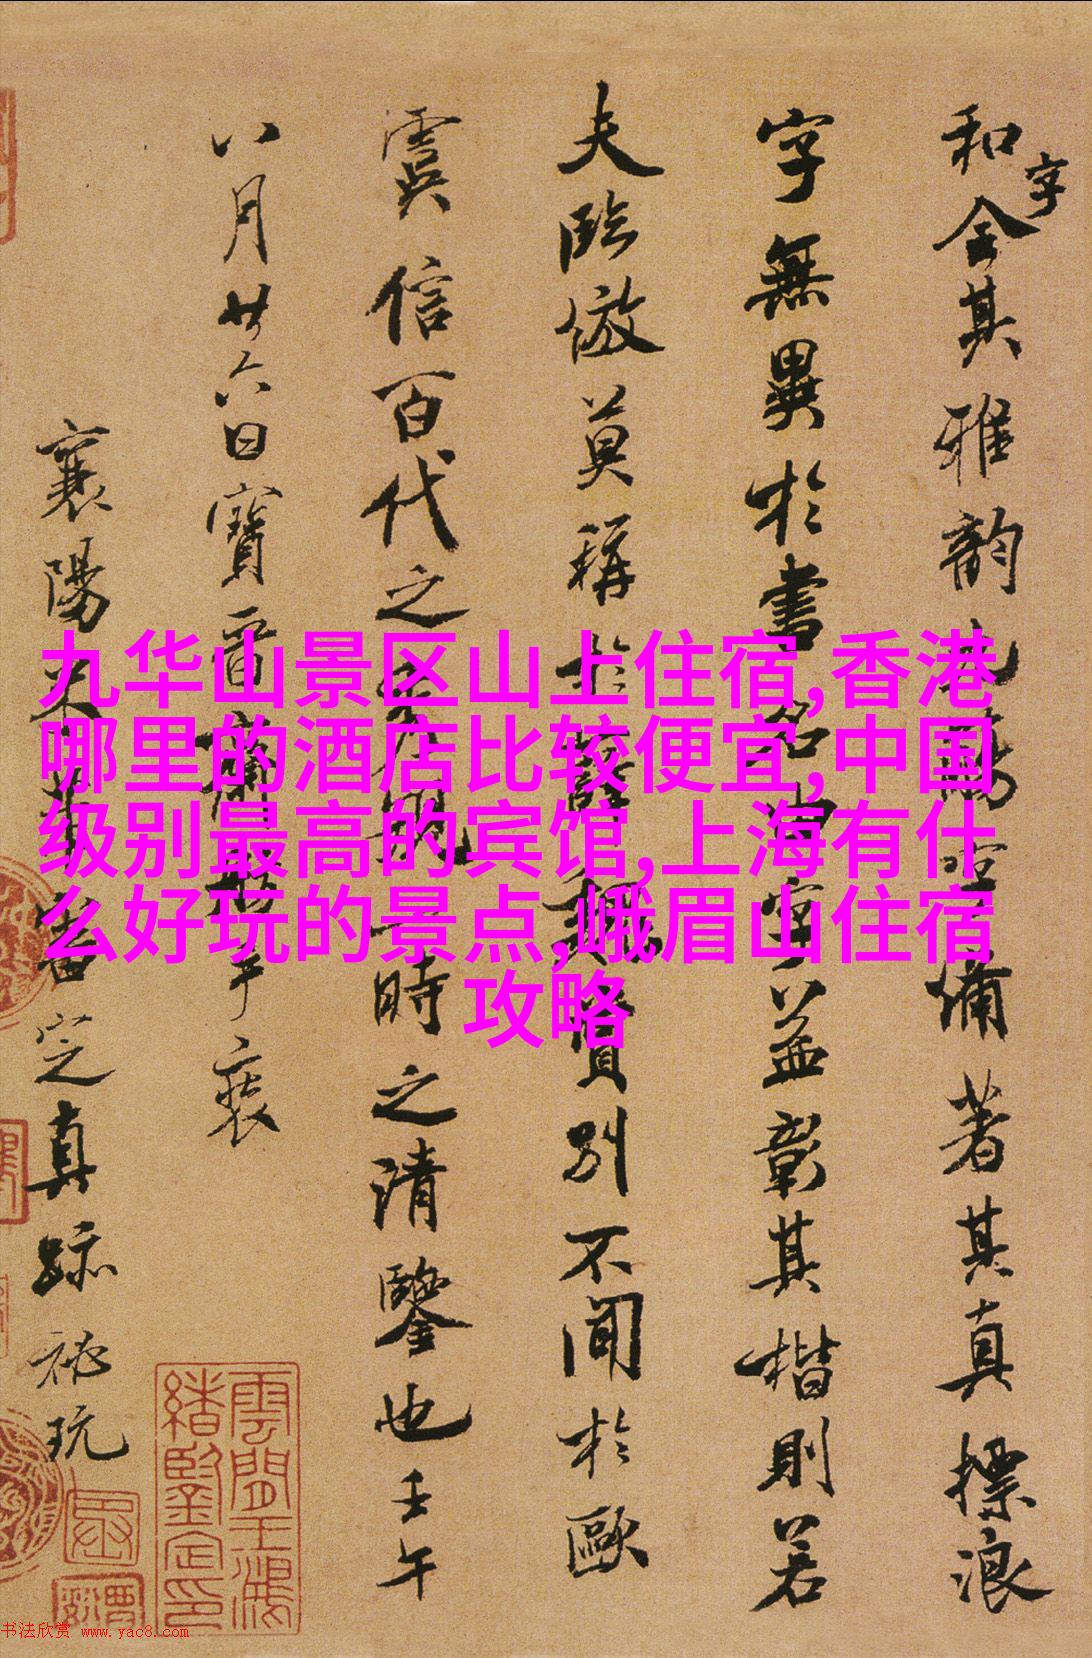 和全其雅韵九
字
著其真標浪
字無異於書名
益彰其楷則若
夫臨倣莫稱於
別不聞於歐
虞信百代之
一時之清鑒也壬午
八月廿六日寶晉齋
手裝
襄陽米芾審定真跡秘玩
九华山景区山上住宿,香港
哪里的酒店比较便宜,中国
级别最高的宾馆,上海有什
么好玩的景点,峨眉山住宿
攻略
书法欣赏 www.yac8.com